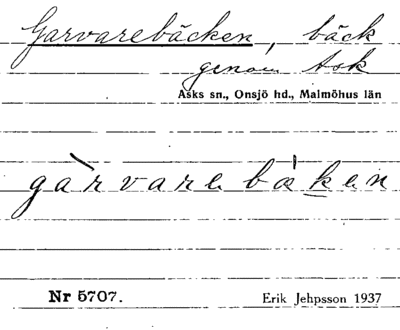 Garvarebäcken, bäck
genom Ask
Asks sn., Onsjö hd., Malmöhus län
gàrvarebæken
Nr 5707.
Erik Jehpsson 1937